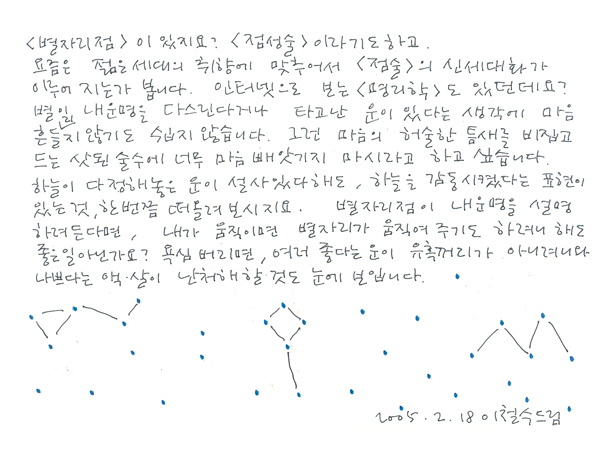 <별자리점>이 있지요? <점성술>이라기도하고.
요즘은 젊은세대의 취향에 맞추어서 <점술>의 신세대화가
이루어 지는가 봅니다. 인터넷으로 보는 <명리학>도 있었던데요?
별일 내운명을 다스린다거나 타고난 운이 있다는 생각에 마음
흔들지않기도 쉽지 않습니다. 그런 마음의 허술한 틈새를 비집고
드는 삿된 술수에 너무 마음 빼앗기지 마시라고 하고 싶습니다.
하늘이 다 정해놓은 운이 설사있다해도, 하늘을 감동시켰다는 표현이
있는것, 한번쯤 떠올려보시지요. 별자리점이 내운명을 설명
하려든다면, 내가 움직이면 별자리가 움직여 주기도 하려니 해도
좋은일아닌가요? 욕심 버리면, 여러 좋다는운이 유혹꺼리가 아니려니와
나쁘다는 액·살이 난처해할것도 눈에 보입니다.
2005.2.18 이철수드림